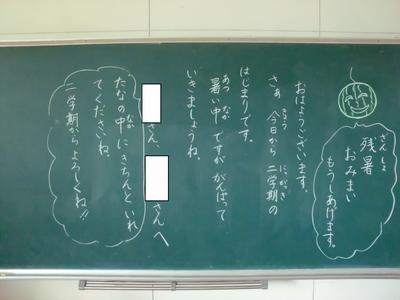 ざんしょ
残暑
おみまい
もうしあげます。
おはようございます。
きょう にがっき
さぁ 今日から 二学期の
はじまりです。
あつ なか
暑い中 ですが がんばって
いきましょうね。
さん、 さんへ
なか
たなの中にきちんといれ
てくださいね。
二学期からよろしくね!!